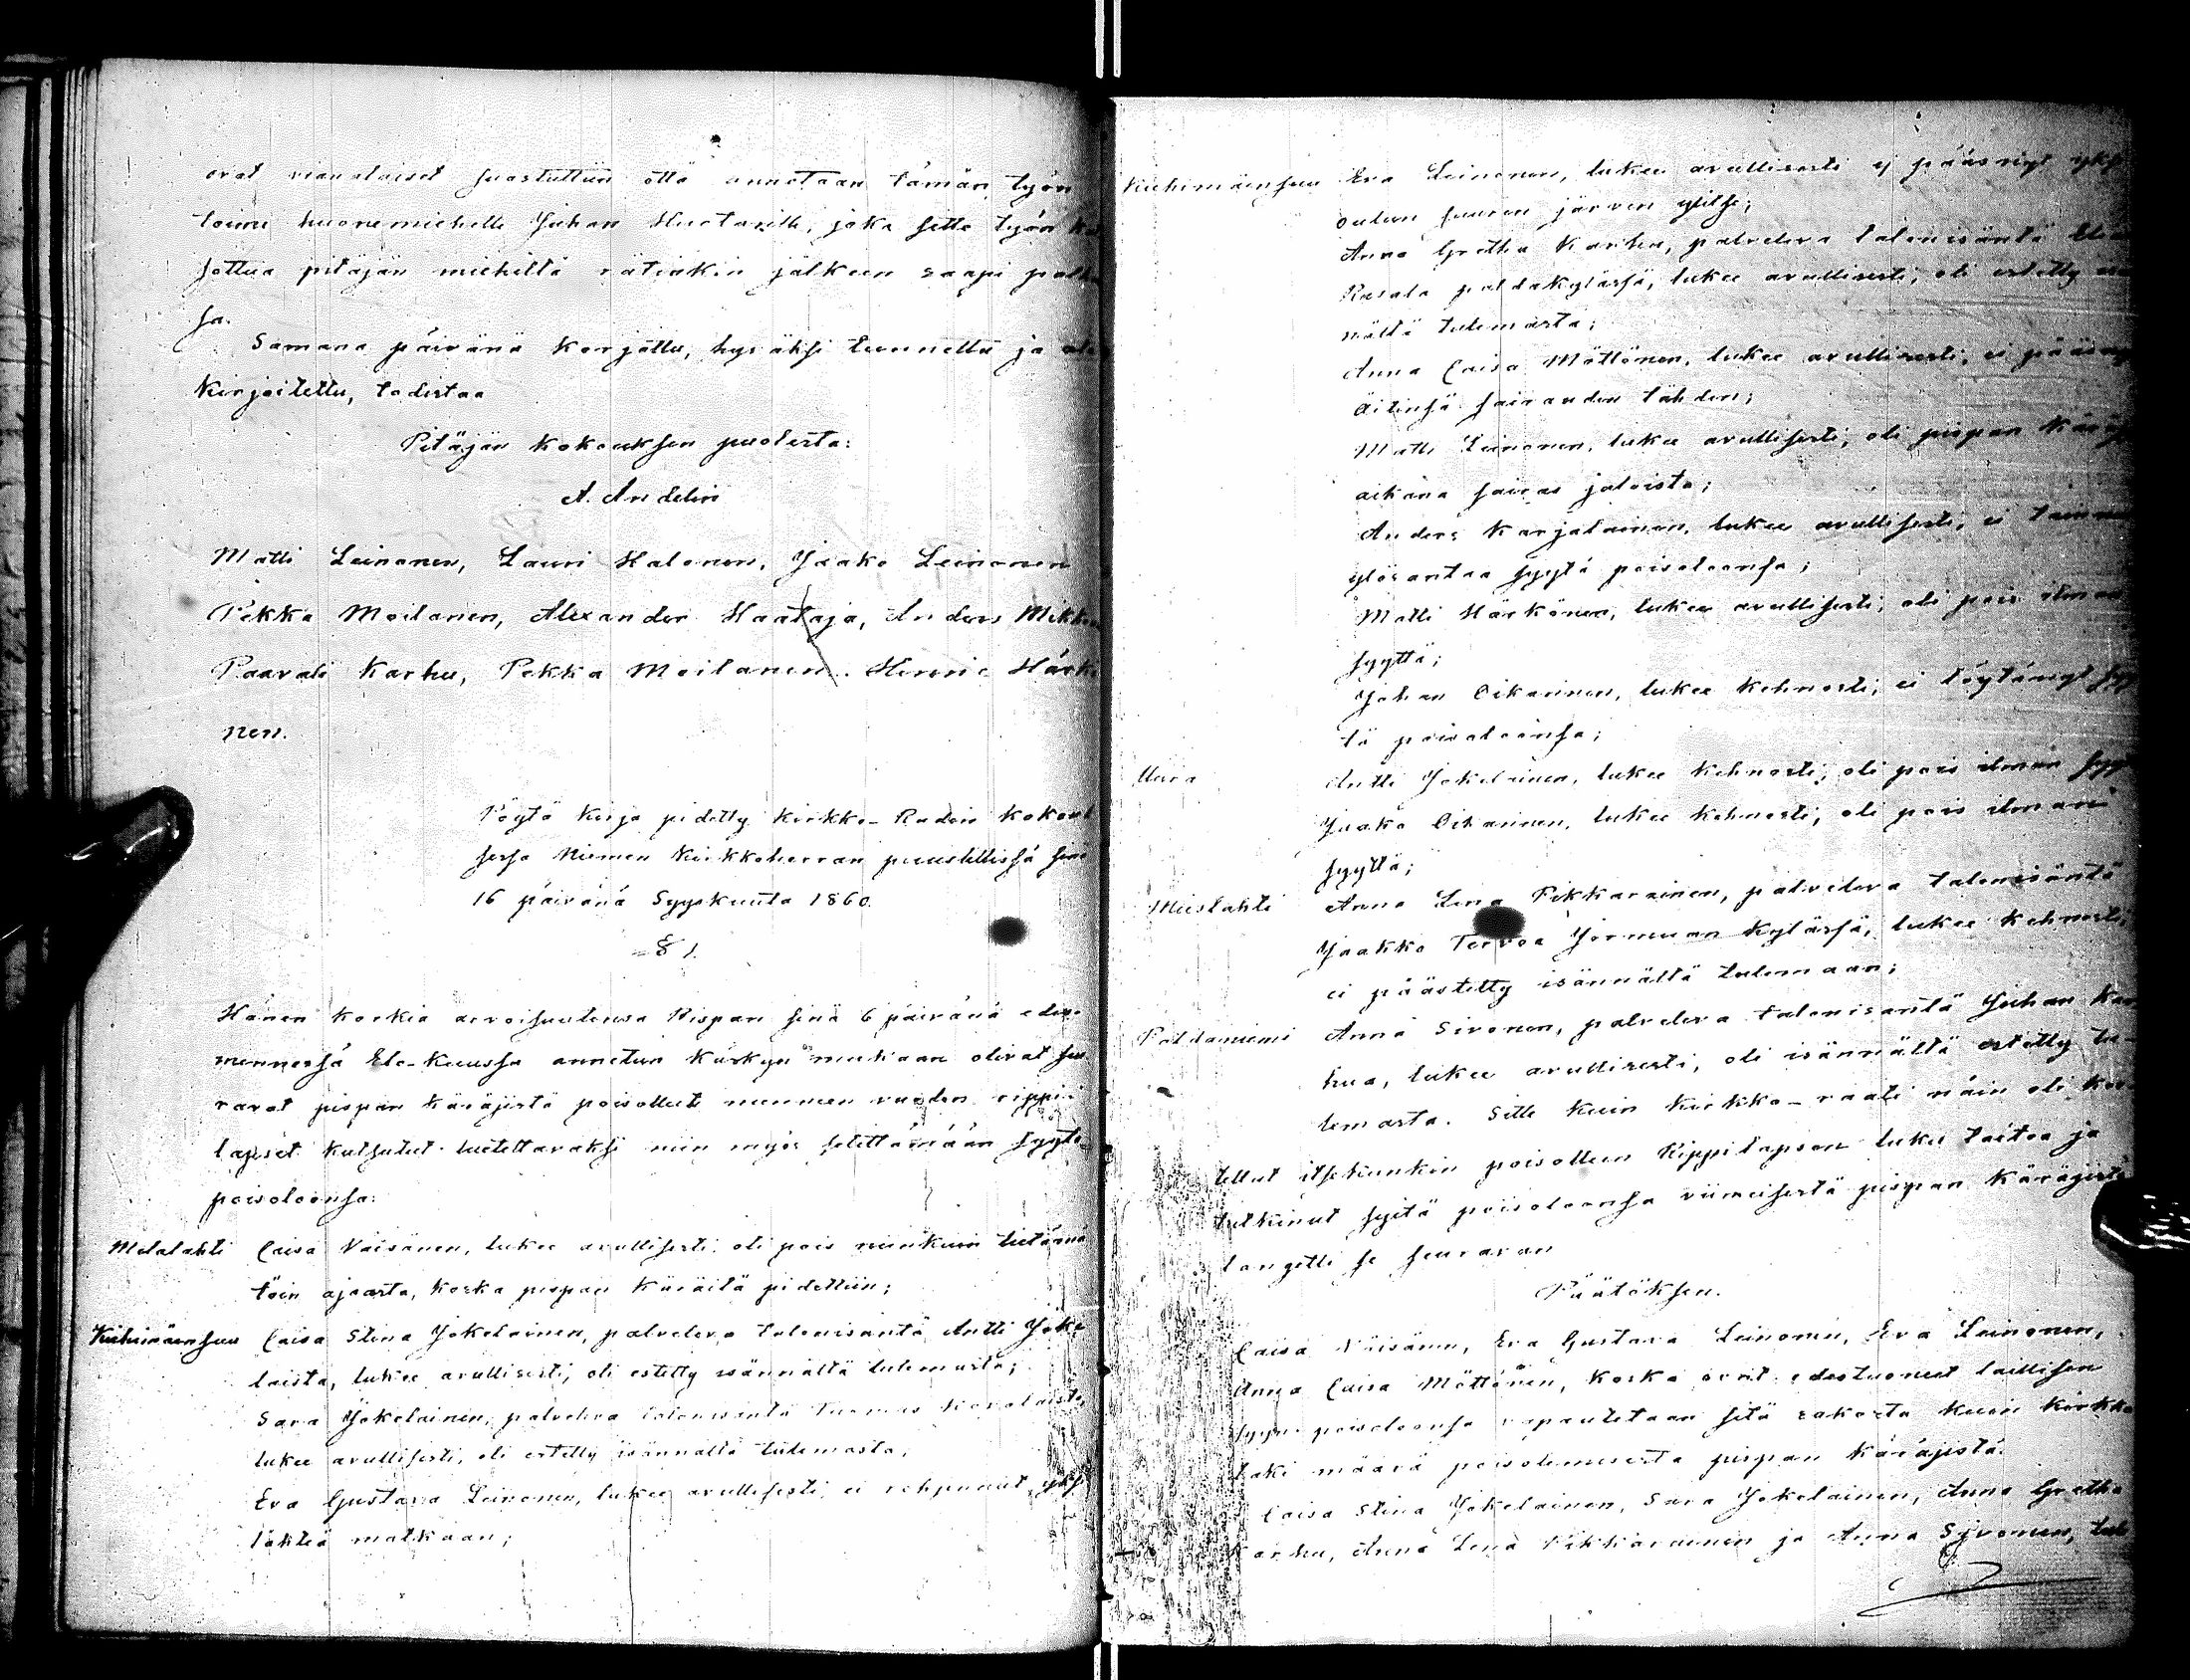 ovat vianalaiset suastuttiin ottä annetaan tämän työn
toime huonemiehelle Juhan Huotarille, joka sitte työn
sottua pitäjän miehiltä rätinkin jälkeen saapi palk
sa.
Samana päivänä korjattu, hyväksi tunnettu ja
kirjoitettu, todistaa
Pitäjän kokouksen puolesta:
A. Andelin
Matti Leinonen, Lauri Halonen, Jaako Leinonen
Pekka Moilanen, Alexander Haataja, Anders Mikk
Paavali Karhu, Pekka Moilanen. Henric Härkö
nen.
Pöytä kirja pidetty kirkko-Radin kokouk
sessa Niemen kirkkoherran puustillissa sinä
16 päivänä Syyskuuta 1860.
§ 1.
Hänen korkia arvoisuutensa Pispan sinä 6 päivänä eden
mennessä Elo-kuussa annetun käskyn mukaan olivat seu
ravat pispan käräjistä poisolleet menneen vuoden rippi-
lapset kutsutut luetettavaksi niin myös selittämään syytä
poisoloonsa:
Melalahti Caisa Väisänen, lukee avullisesti, oli pois niinkuin tietämä
töin ajasta, koska pispan käräitä pidettiin;
Kuhmäensuu Caisa Stina Jokelainen, palveleva talonisäntä Antti Joke
laista, lukee avullisesti, oli estetty isännältä tulemasta;
Sara Jokelainen, palveleva talonisäntä Tuomas Karolaista,
lukee avullisesti, oli estetty isännältä tulemasta,
Eva Gustava Leinonen, lukee avullisesti, ei rohjennut yks
lähteä matkaan;
Kuhmäensuu Eva Leinonen, lukee avullisesti ej päässyt yks
oulun suuren järven ylitse;
Anna Gretha Karhu, palveleva talonisäntä
Rasala paldakylässä, lukee avullisesti, oli estetty isän
nältä tulemasta;
Anna Caisa Möttönen, lukee avullisesti, ei päässy
äitinsä sairauden tähden;
Matti Leinonen, lukee avullisesti, oli pispan käräj
aikana sairas jaloista;
Anders Karjalainen, lukee avullisesti, ei
ylösantaa syytä poisoloonsa;
Matti Härkönen, lukee avullisesti, oli pois ilman
syyttä;
Johan Oikarinen, lukee kehnosti, ei löytänyt syy
tä poisoloonsa;
Uura Antti Jokelainen, lukee kehnosti, oli pois ilman syy
Jaako Oikarinen, lukee kehnosti, oli pois ilman
syyttä;
Mieslahti Anna Lena Pikkarainen, palveleva talonisäntä
Jaakko Tervoa Jormuan kylässä, lukee kehnosti,
ei päästetty isännältä tulemaan;
Paldaniemi Anna Sivonen, palveleva talonisäntä Juhan Kar
hua, lukee avullisesti, oli isännältä estetty tu-
lemasta. Sitte kuin kirkko-raati näin oli kuu
tellut itsekunkin poisolleen Rippilapsen luku taitoa ja
tutkinut syitä poisoloonsa viimeisestä pispan käräjistä
langetti se seuravan
Päätöksen.
Caisa Väisänen, Eva Gustava Leinonen, Eva Leinonen,
Anna Caisa Möttönen, koska ovat edestuoneet laillisen
syyn poisoloonsa vapautetaan sitä sakosta kuin kirkko
laki määrä poisolemisesta pispan käräjistä.
Caisa Stina Jokelainen, Sara Jokelainen, Anna Gretha
Karhu, Anna Lena Pikkarainen ja Anna Syvonen, tul